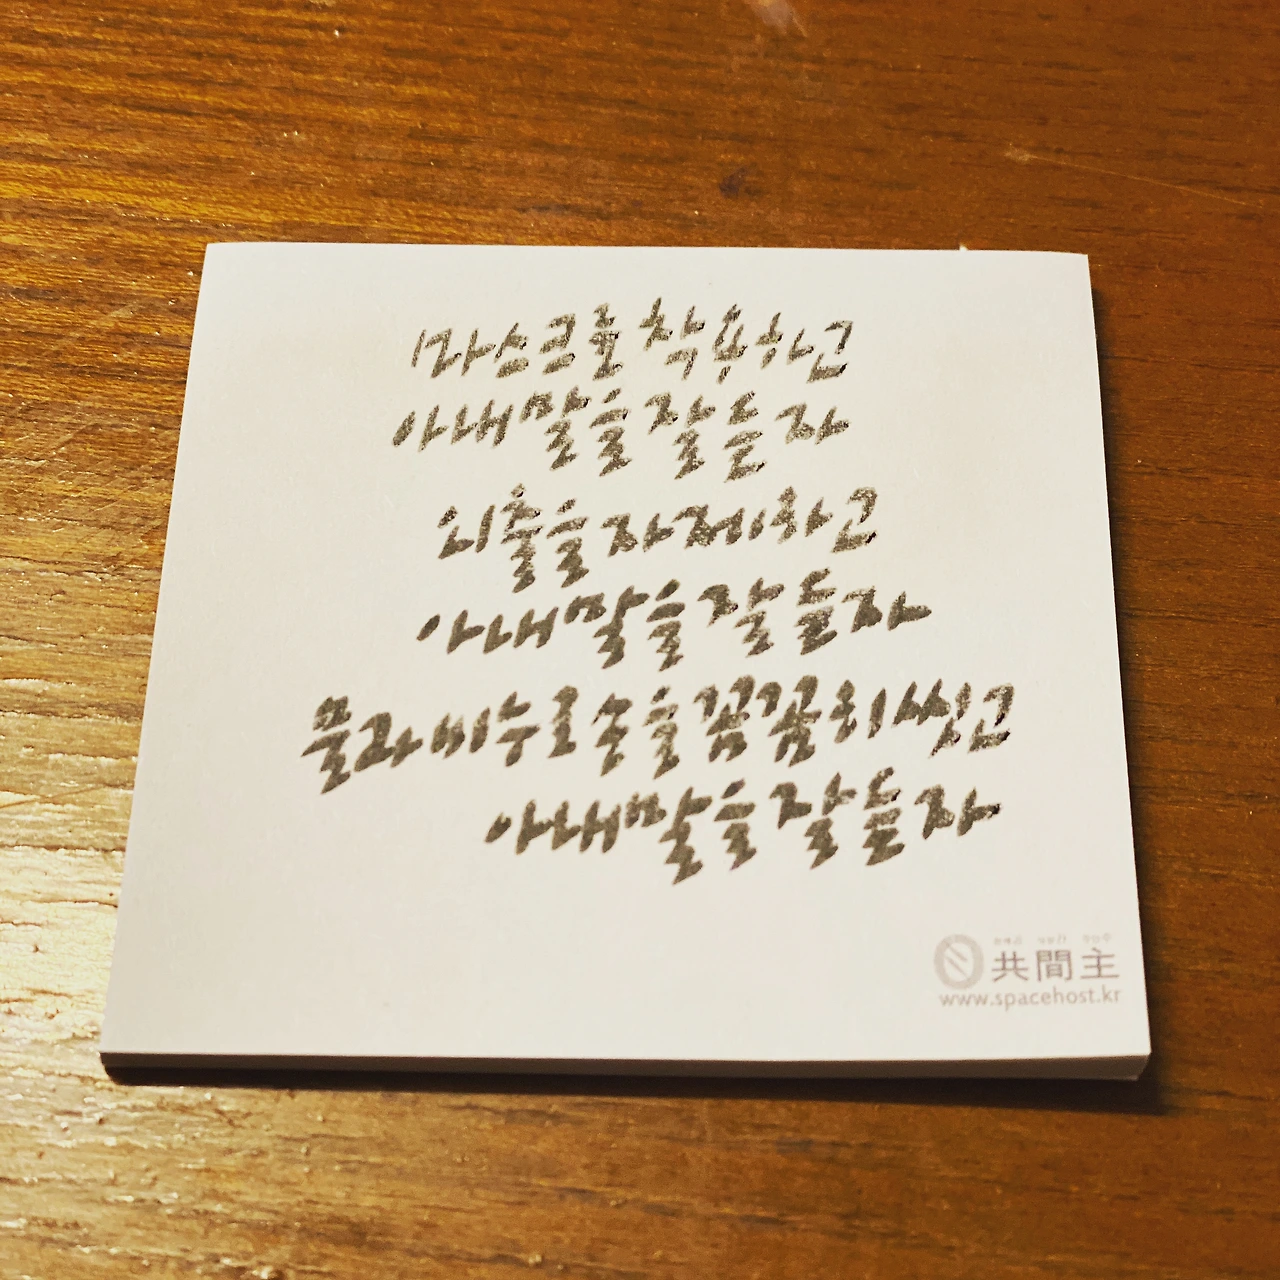 마스크를 착용하고
아내 말을 잘 듣자
외출을 자제하고
아내 말을 잘 듣자
물과 비누로 손을 꼼꼼히 씻고
아내 말을 잘 듣자
共間主
www.spacehost.kr